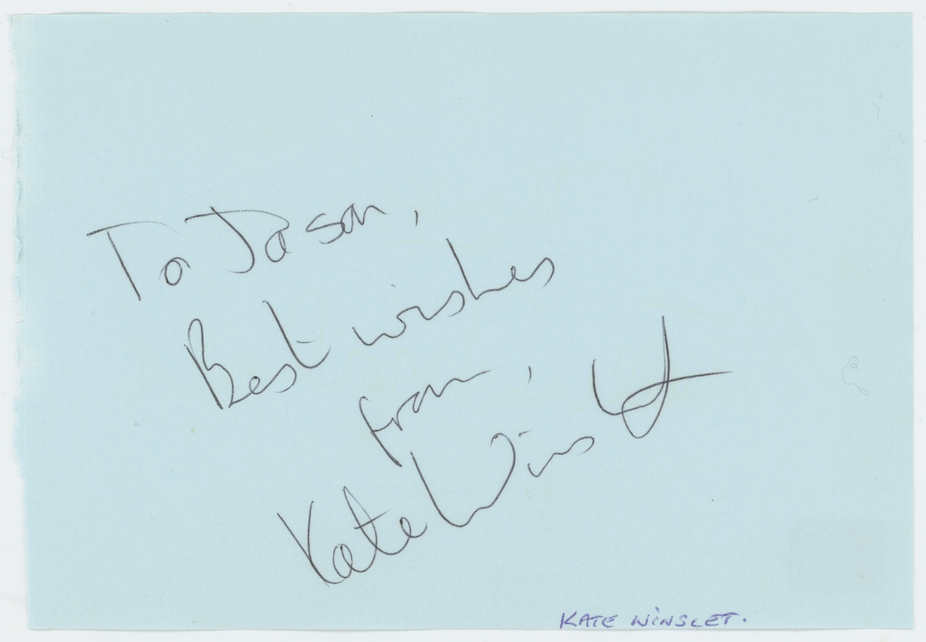 To Jason,
Best wishes
from,
Kate Winslet
KATE WINSLET.